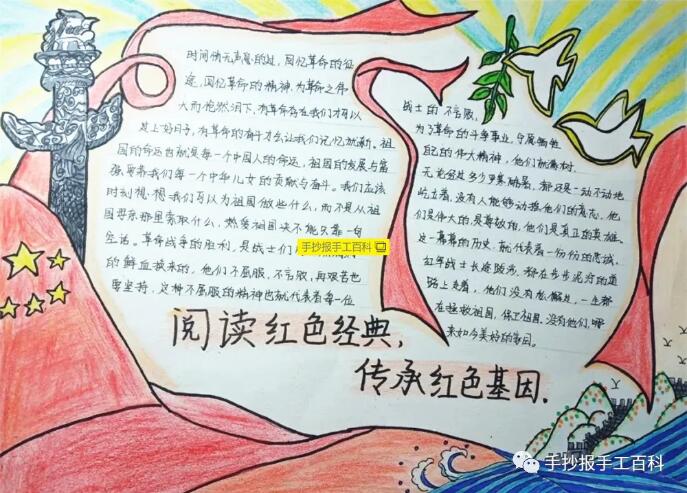 时间悄无声息的过,回忆革命的征
途,回忆革命的精神,为革命之伟
大而怆然泪下,有革命存在我们才可以
过上好日子,有革命的奋斗才会让我们记忆犹新。祖
国的命运也就是每一个中国人的命运,祖国的发展与富
强,需要我们每一个中华儿女的贡献与奋斗。我们应该
时刻想,想我们可以为祖国做些什么,而不是从祖
国母亲那里索取什么,热爱祖国决不能只靠一句
空话。革命战争的胜利,是战士们
的鲜血换来的,他们不屈服,不言败,再艰苦也
要坚持,这种不屈服的精神也就代表着每一位
战士的不言败,
为了革命的斗争事业,宁属牺牲
自己的伟大精神,他们就像树,
无论经过多少严寒酷暑,都还是一动不动地
屹立着,没有人能够动摇他们的意志,他
们是伟大的,是尊敬的,他们是真正的英雄。
这一幕幕的历史,就代表着一份份的忠诚,
红军战士长途跋涉,都在步步泥泞的道
路上走着,他们没有想懈怠,一生都
在拯救祖国,保卫祖国。没有他们,哪
来如今美好的家园。
阅读红色经典,
传承红色基因.
手抄报手工百科
手抄报手工百科